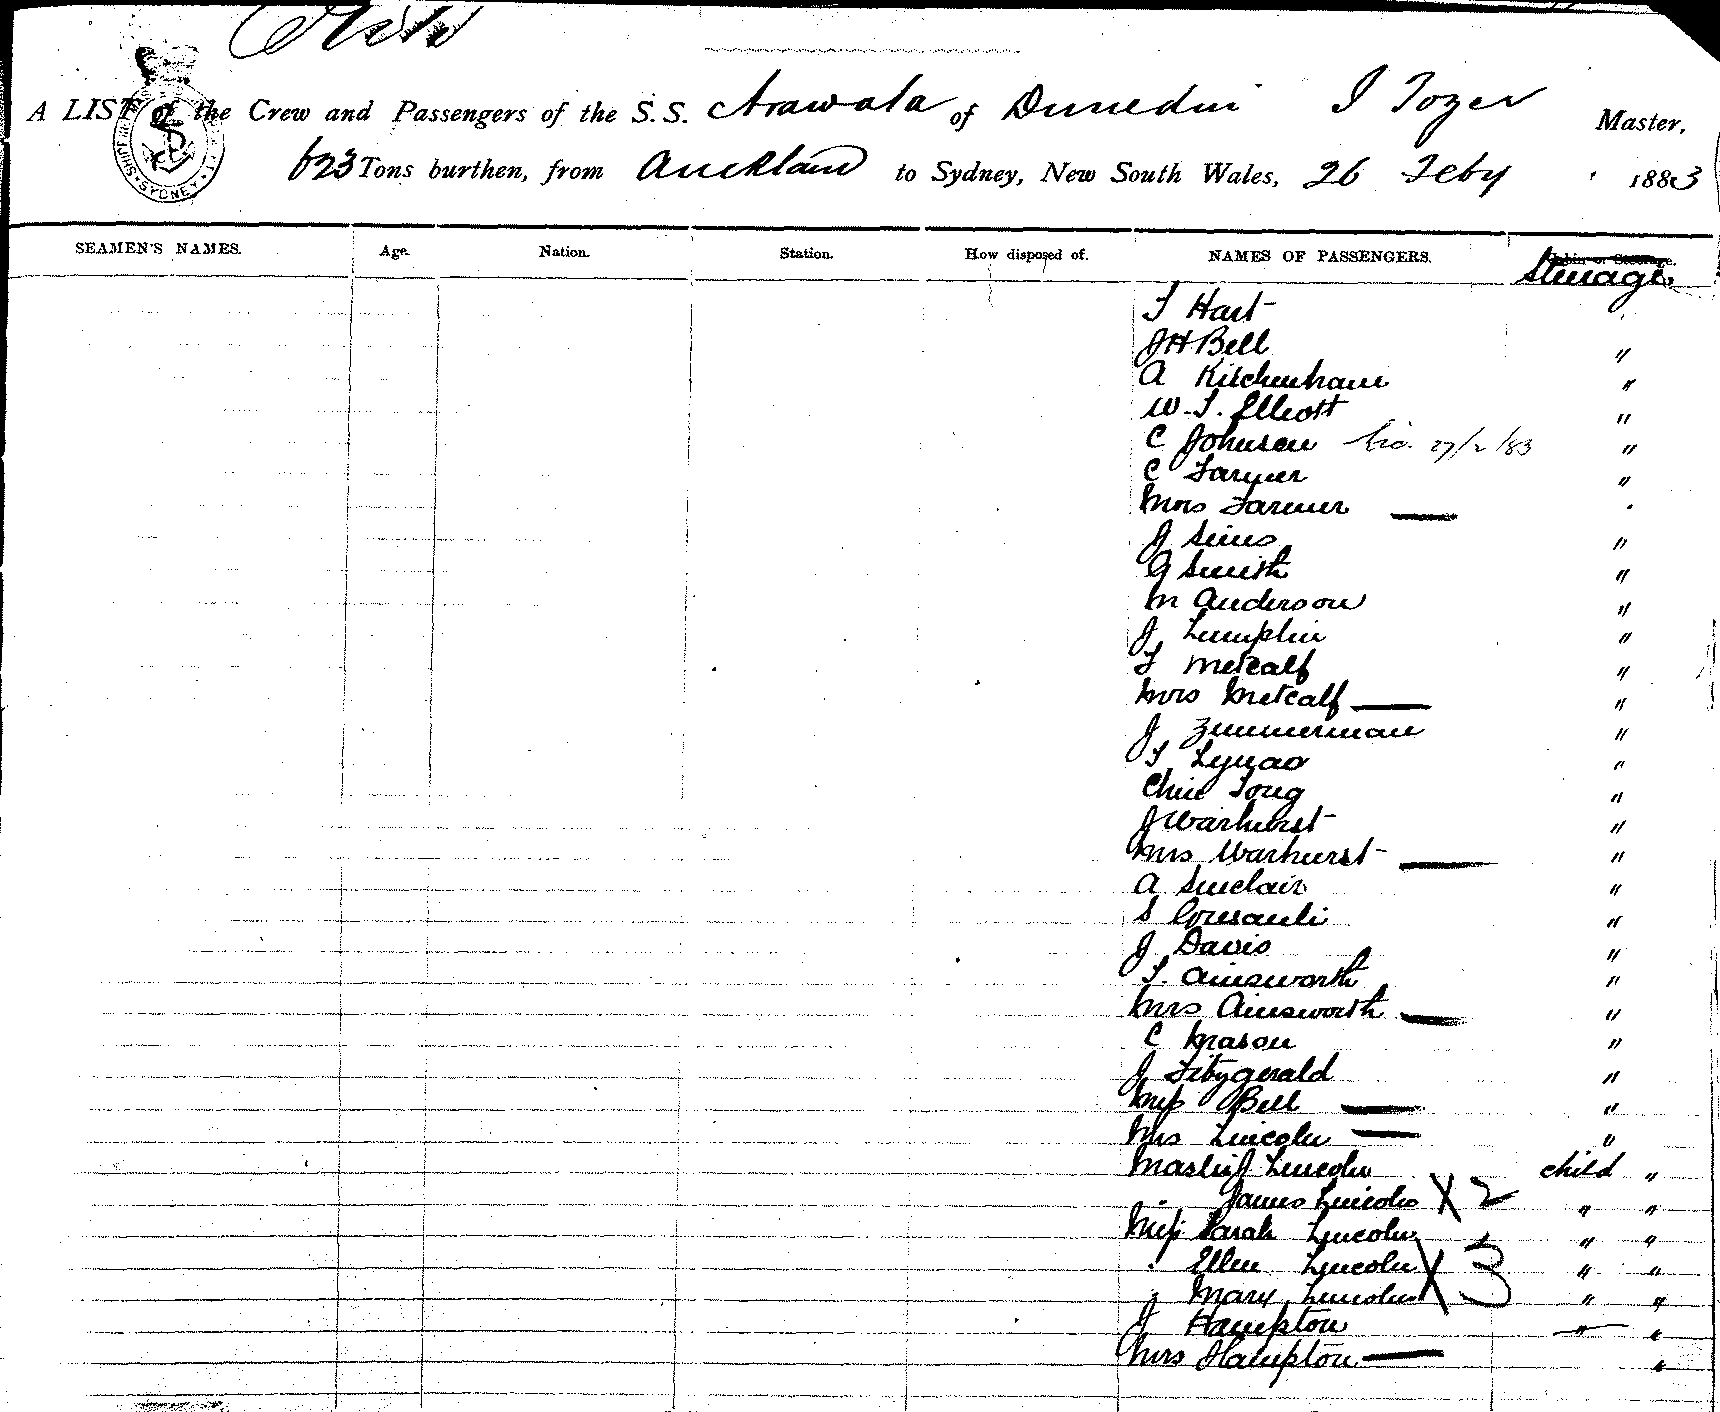 A LIST of the Crew and Passengers of the S.S. Arawata of Dunedin J Tozer Master,
623 Tons burthen, from Auckland to Sydney, New South Wales, 26 Feby 1883
SEAMEN'S NAMES. Age. Nation. Station. How disposed of. NAMES OF PASSENGERS. Steerage
T Hart
J H Bell "
A Kitchenham "
W. T. Elliott "
C Johnson 27/2/83 "
C Farmer "
Mrs Farmer
J Sims "
G Smith "
M Anderson "
J Lumplin "
T Metcalf "
Mrs Metcalf "
J Zimmerman "
T Lynas "
Chin Tong "
J Warhurst "
Mrs Warhurst "
A Sinclair "
S "
J Davis "
T. Ainsworth "
Mrs Ainsworth "
C Mason "
J Fitzgerald "
Miss Bell "
Mrs Lincoln "
Master J Lincoln child "
" James Lincoln X 2 " "
Miss Sarah Lincoln " "
" Ellen Lincoln X 3 " "
" Mary Lincoln " "
J Hampton " "
Mrs Hampton "